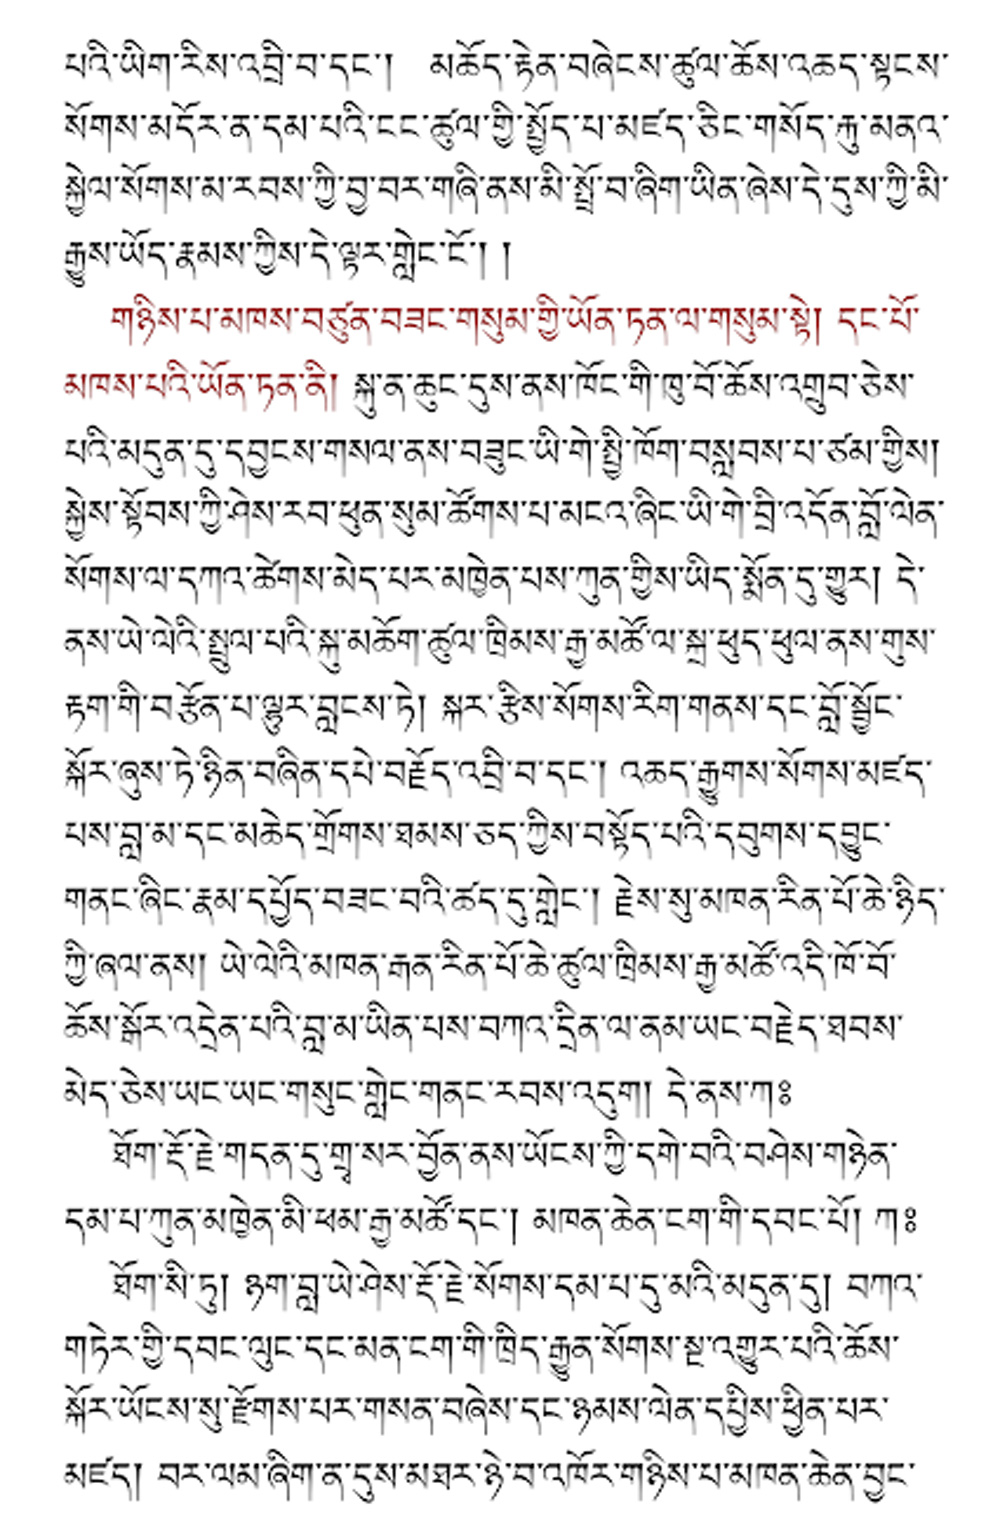 པའི་ཡིག་རིས་འབྲི་བ་དང་། མཆོད་རྟེན་བཞེངས་ཚུལ་ཆོས་འཆད་སྟངས་
སོགས་མདོར་ན་དམ་པའི་ངང་ཚུལ་གྱི་སྤྱོད་པ་མཛད་ཅིང་གསོད་རྐུ་མནའ་
སྐྱེལ་སོགས་མ་རབས་ཀྱི་བྱ་བར་གཞི་ནས་མི་སྤྲོ་བ་ཞིག་ཡིན་ཞེས་དེ་དུས་ཀྱི་མི་
རྒྱུས་ཡོད་རྣམས་ཀྱིས་དེ་ལྟར་གླེང་ངོ་། །
གཉིས་པ་མཁས་བཙུན་བཟང་གསུམ་གྱི་ཡོན་ཏན་ལ་གསུམ་སྟེ། དང་པོ་
མཁས་པའི་ཡོན་ཏན་ནི། སྐུ་ན་ཆུང་དུས་ནས་ཁོང་གི་ཁུ་བོ་ཆོས་འགྲུབ་ཅེས་
པའི་མདུན་དུ་དབྱངས་གསལ་ནས་བཟུང་ཡི་གེ་སྤྱི་ཁོག་བསླབས་པ་ཙམ་གྱིས།
སྐྱེས་སྟོབས་ཀྱི་ཤེས་རབ་ཕུན་སུམ་ཚོགས་པ་མངའ་ཞིང་ཡི་གེ་བྲི་འདོན་བློ་ལེན་
སོགས་ལ་དཀའ་ཚེགས་མེད་པར་མཁྱེན་པས་ཀུན་གྱིས་ཡིད་སྨོན་དུ་གྱུར། དེ་
ནས་ཡེ་ལེའི་སྤྲུལ་པའི་སྐུ་མཆོག་ཚུལ་ཁྲིམས་རྒྱ་མཚོ་ལ་སྐྲ་ཕུད་ཕུལ་ནས་གུས་
རྟག་གི་བརྩོན་པ་ལྷུར་བླངས་ཏེ། སྐར་རྩིས་སོགས་རིག་གནས་དང་བློ་སྦྱོང་
སྐོར་ཞུས་ཏེ་ཉིན་བཞིན་དཔེ་བརྗོད་འབྲི་བ་དང་། འཆད་རྒྱུགས་སོགས་མཛད་
པས་བླ་མ་དང་མཆེད་གྲོགས་ཐམས་ཅད་ཀྱིས་བསྟོད་པའི་དབུགས་དབྱུང་
གནང་ཞིང་རྣམ་དཔྱོད་བཟང་བའི་ཚད་དུ་གླེང་། རྗེས་སུ་མཁན་རིན་པོ་ཆེ་ཉིད་
ཀྱི་ཞལ་ནས། ཡེ་ལེའི་མཁན་རྒན་རིན་པོ་ཆེ་ཚུལ་ཁྲིམས་རྒྱ་མཚོ་འདི་ཁོ་བོ་
ཆོས་སྒོར་འདྲེན་པའི་བླ་མ་ཡིན་པས་བཀའ་དྲིན་ལ་ནམ་ཡང་བརྗེད་ཐབས་
མེད་ཅེས་ཡང་ཡང་གསུང་གླེང་གནང་རབས་འདུག། དེ་ནས་ཀཿ
ཐོག་རྡོ་རྗེ་གདན་དུ་གྲྭ་སར་བྱོན་ནས་ཡོངས་ཀྱི་དགེ་བའི་བཤེས་གཉེན་
དམ་པ་ཀུན་མཁྱེན་མི་ཕམ་རྒྱ་མཚོ་དང་། མཁན་ཆེན་ངག་གི་དབང་པོ། ཀཿ
ཐོག་སི་ཏུ། ཉག་བླ་ཡེ་ཤེས་རྡོ་རྗེ་སོགས་དམ་པ་དུ་མའི་མདུན་དུ། བཀའ་
གཏེར་གྱི་དབང་ལུང་དང་མན་ངག་གི་ཁྲིད་རྒྱུན་སོགས་སྔ་འགྱུར་པའི་ཆོས་
སྐོར་ཡོངས་སུ་རྫོགས་པར་གསན་བཞེས་དང་ཉམས་ལེན་དཔྱིས་ཕྱིན་པར་
མཛད། བར་ལམ་ཞིག་ན་དུས་མཐར་ཉེ་བ་འཁོར་གཉིས་པ་མཁན་ཆེན་བྱང་